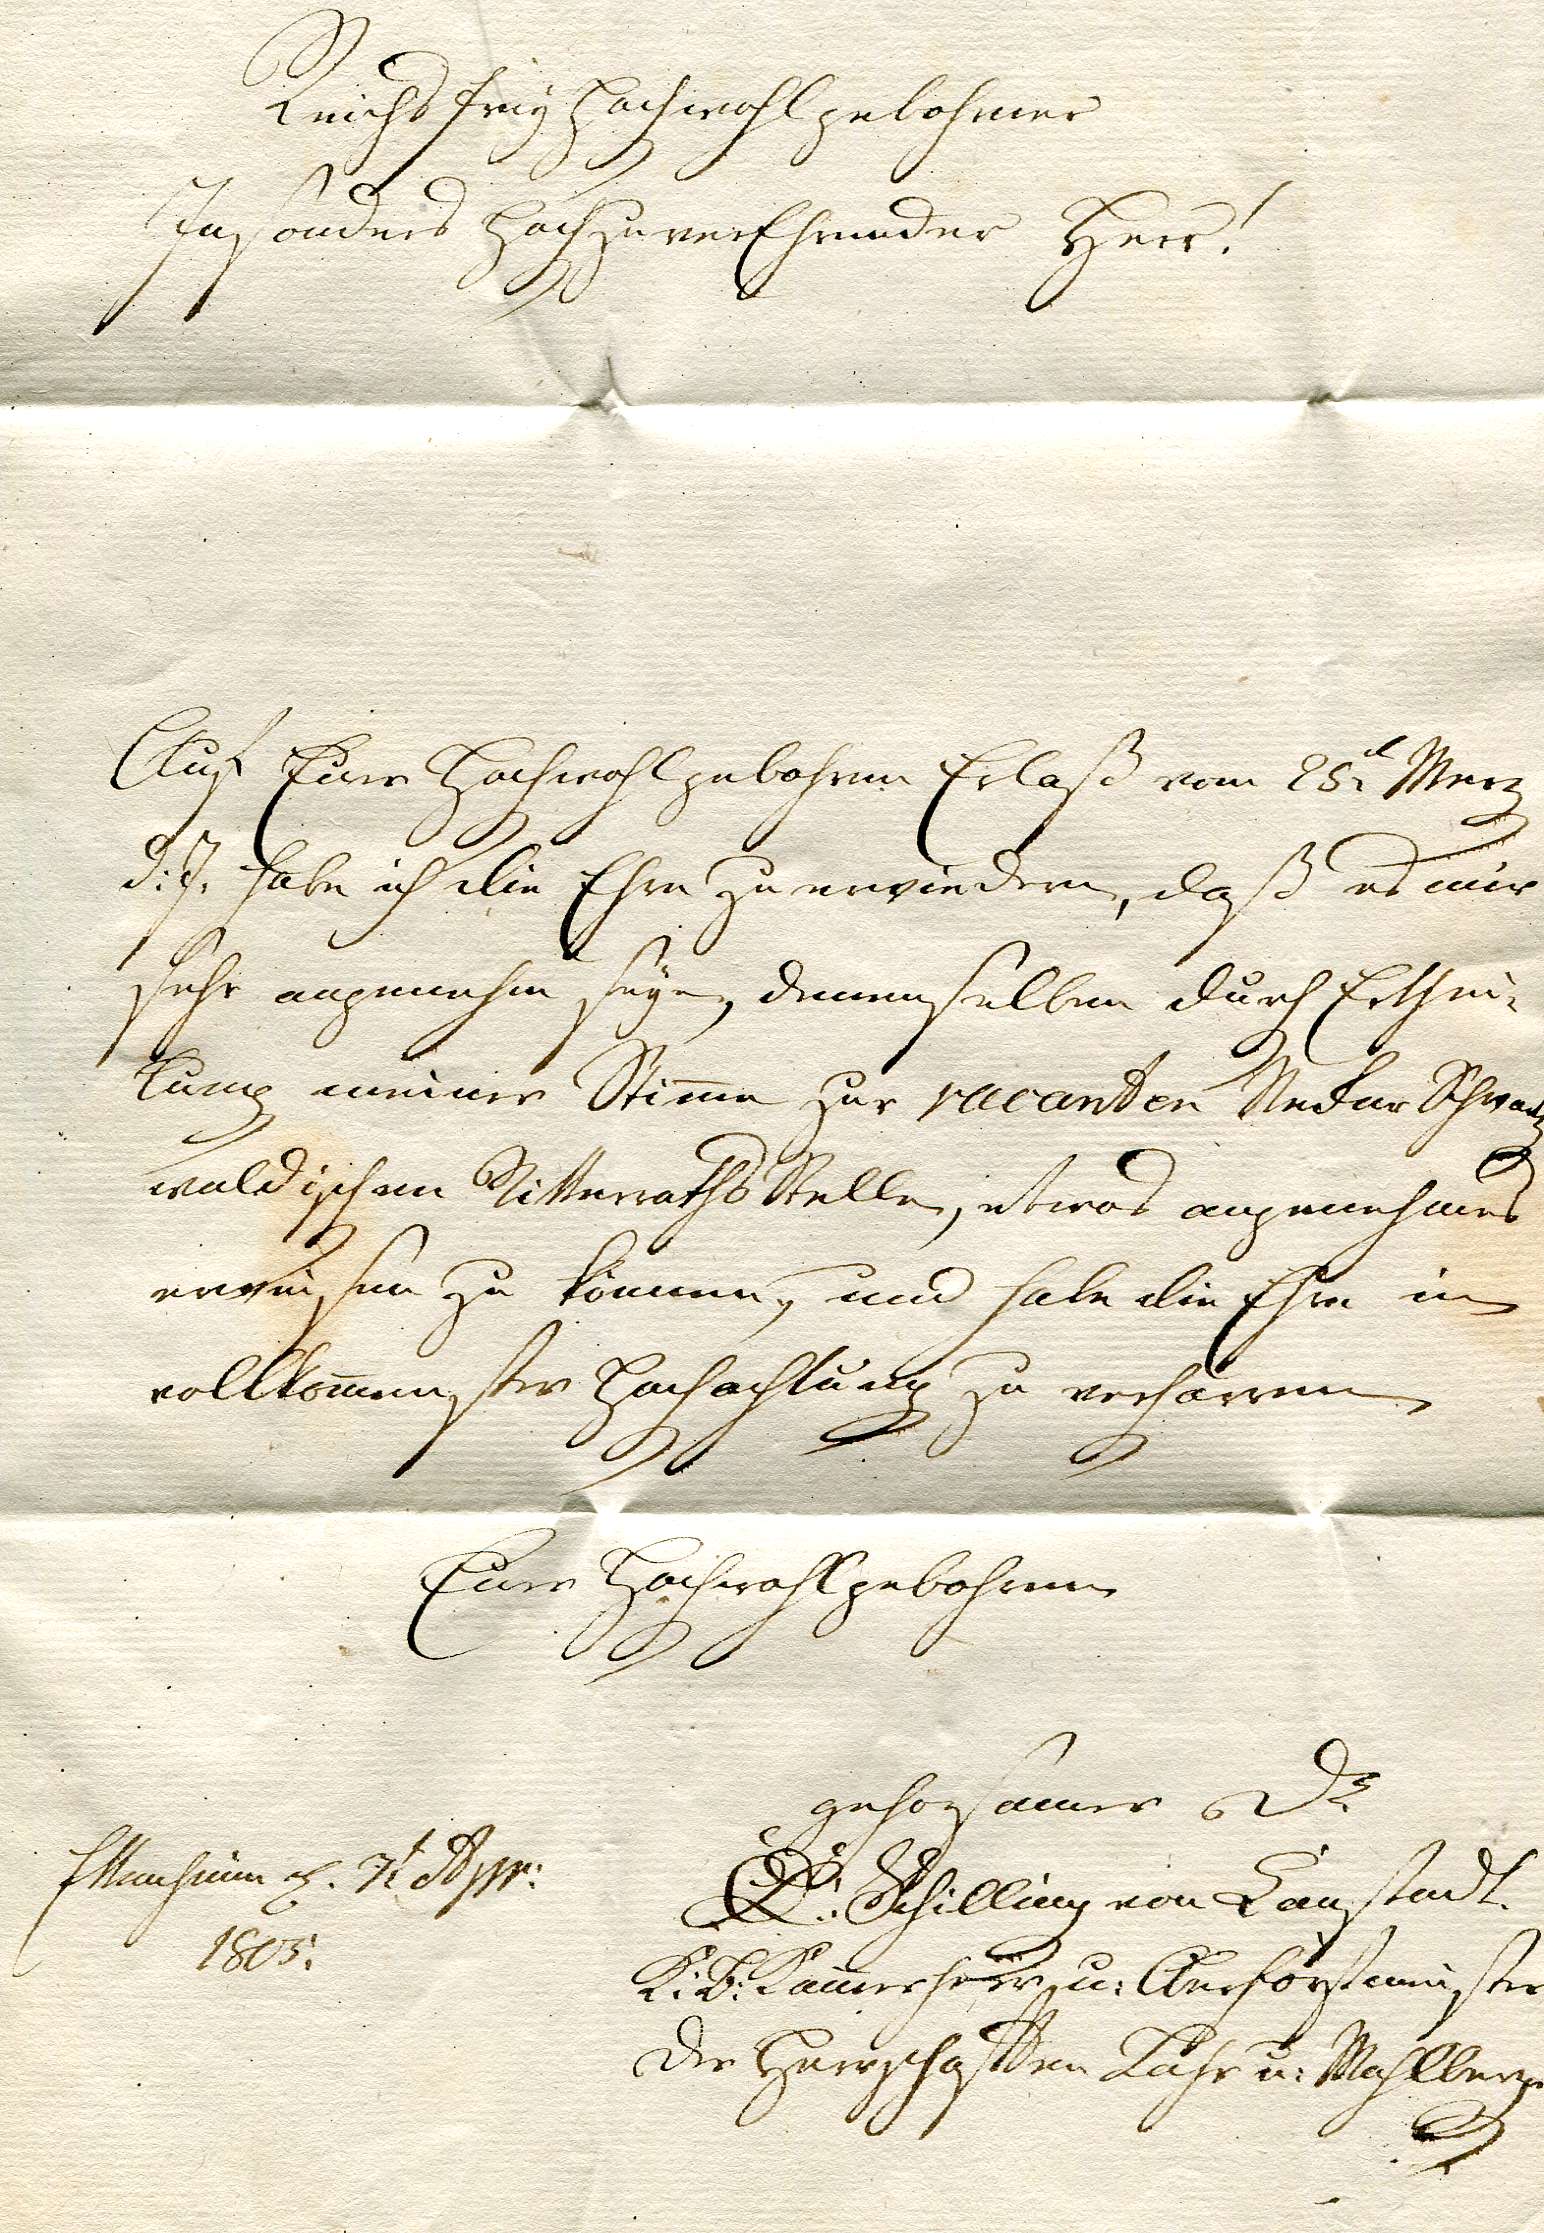 Reichs frey Hochwohlgebohrner
Insonders HochzuverEhrender Herr!
Auf Euer Hochwohlgebohren Erlaß vom 28t Merz
d: J. habe ich die Ehre zu erwiedern, daß es mir
sehr angenehm seye, denenselben durch Erthei-
lung meiner Stimme zur vacanten Neckar Schwarz
waldischen Ritterraths Stelle, etwas angenehmes
erweisen zu können, und habe die Ehre in
vollkommenster Hochachtung zu verharren
Euer Hochwohlgebohren
gehorsamer Dr
Schilling von Canstadt.
K: B: Kammerherr u: Oberforstmeister
der Herrschafften Lahr u: Mahlberg
Ettenheim d. 7t Apr:
1805.